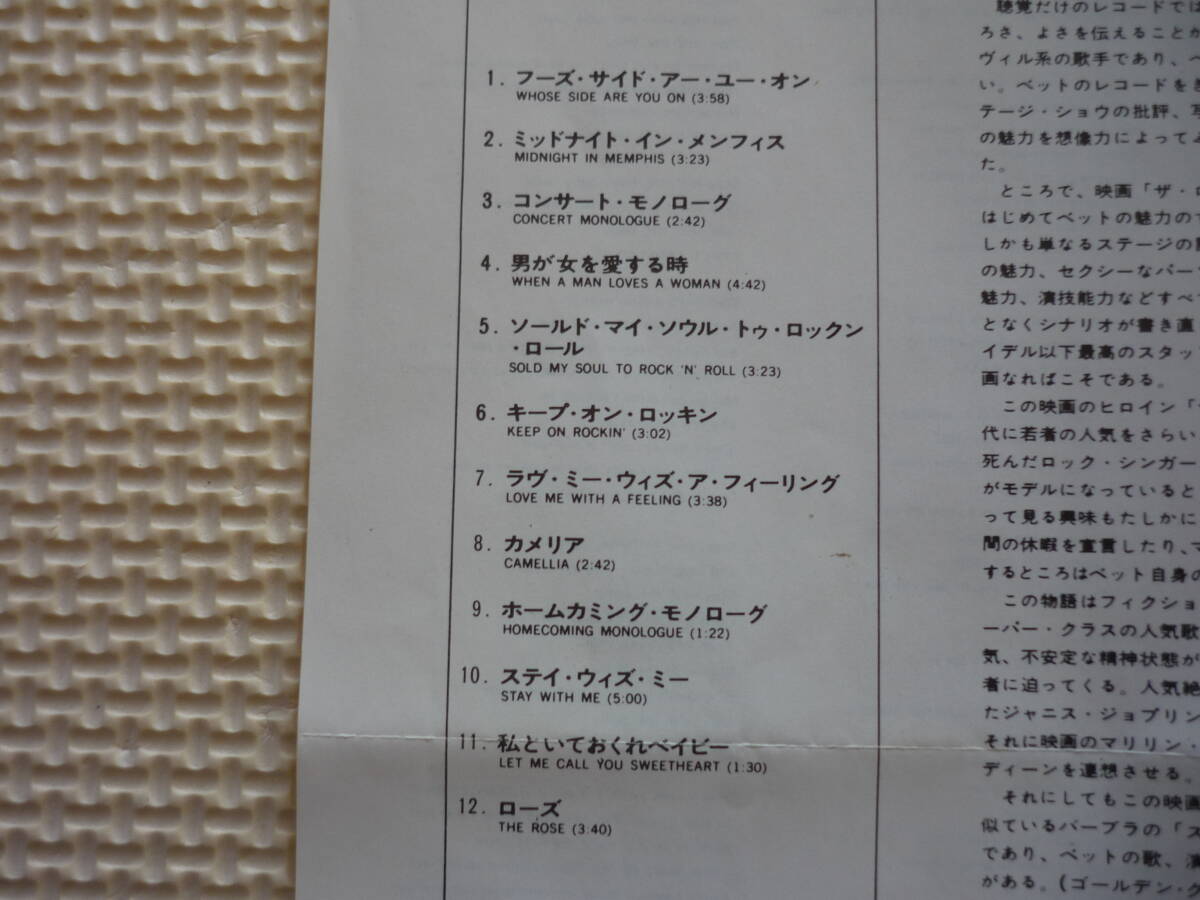 1. フーズ・サイド・アー・ユー・オン
WHOSE SIDE ARE YOU ON (3:58)
2. ミッドナイト・イン・メンフィス
MIDNIGHT IN MEMPHIS (3:23)
3. コンサート・モノローグ
CONCERT MONOLOGUE (2:42)
4. 男が女を愛する時
WHEN A MAN LOVES A WOMAN (4:42)
5. ソールド・マイ・ソウル・トゥ・ロックン
・ロール
SOLD MY SOUL TO ROCK 'N' ROLL (3:23)
6. キープ・オン・ロッキン
KEEP ON ROCKIN' (3:02)
7. ラヴ・ミー・ウィズ・ア・フィーリング
LOVE ME WITH A FEELING (3:38)
8. カメリア
CAMELLIA (2:42)
9. ホームカミング・モノローグ
HOMECOMING MONOLOGUE (1:22)
10. ステイ・ウィズ・ミー
STAY WITH ME (5:00)
11. 私といておくれベイビー
LET ME CALL YOU SWEETHEART (1:30)
12. ローズ
THE ROSE (3:40)
聴覚だけのレコードでは
ろさ、よさを伝えることが
ヴィル系の歌手であり、ベ
い。ベットのレコードを
テージ・ショウの批評、
の魅力を想像力によって
た。
ところで、映画「ザ・
はじめてベットの魅力の
しかも単なるステージの
の魅力、セクシーなパー
魅力、演技能力などすべ
となくシナリオが書き直
イデル以下最高のスタッ
画なればこそである。
この映画のヒロイン「
代に若者の人気をさらい
死んだロック・シンガー
がモデルになっていると
って見る興味もたしかに
間の休暇を宣言したり、
するところはベット自身の
この物語はフィクショ
ーパー・クラスの人気歌
気、不安定な精神状態が
者に迫ってくる。人気絶
たジャニス・ジョプリン
それに映画のマリリン・
ディーンを連想させる。
それにしてもこの映画
似ているバーブラの「ス
であり、ベットの歌、演
がある。(ゴールデン・グ